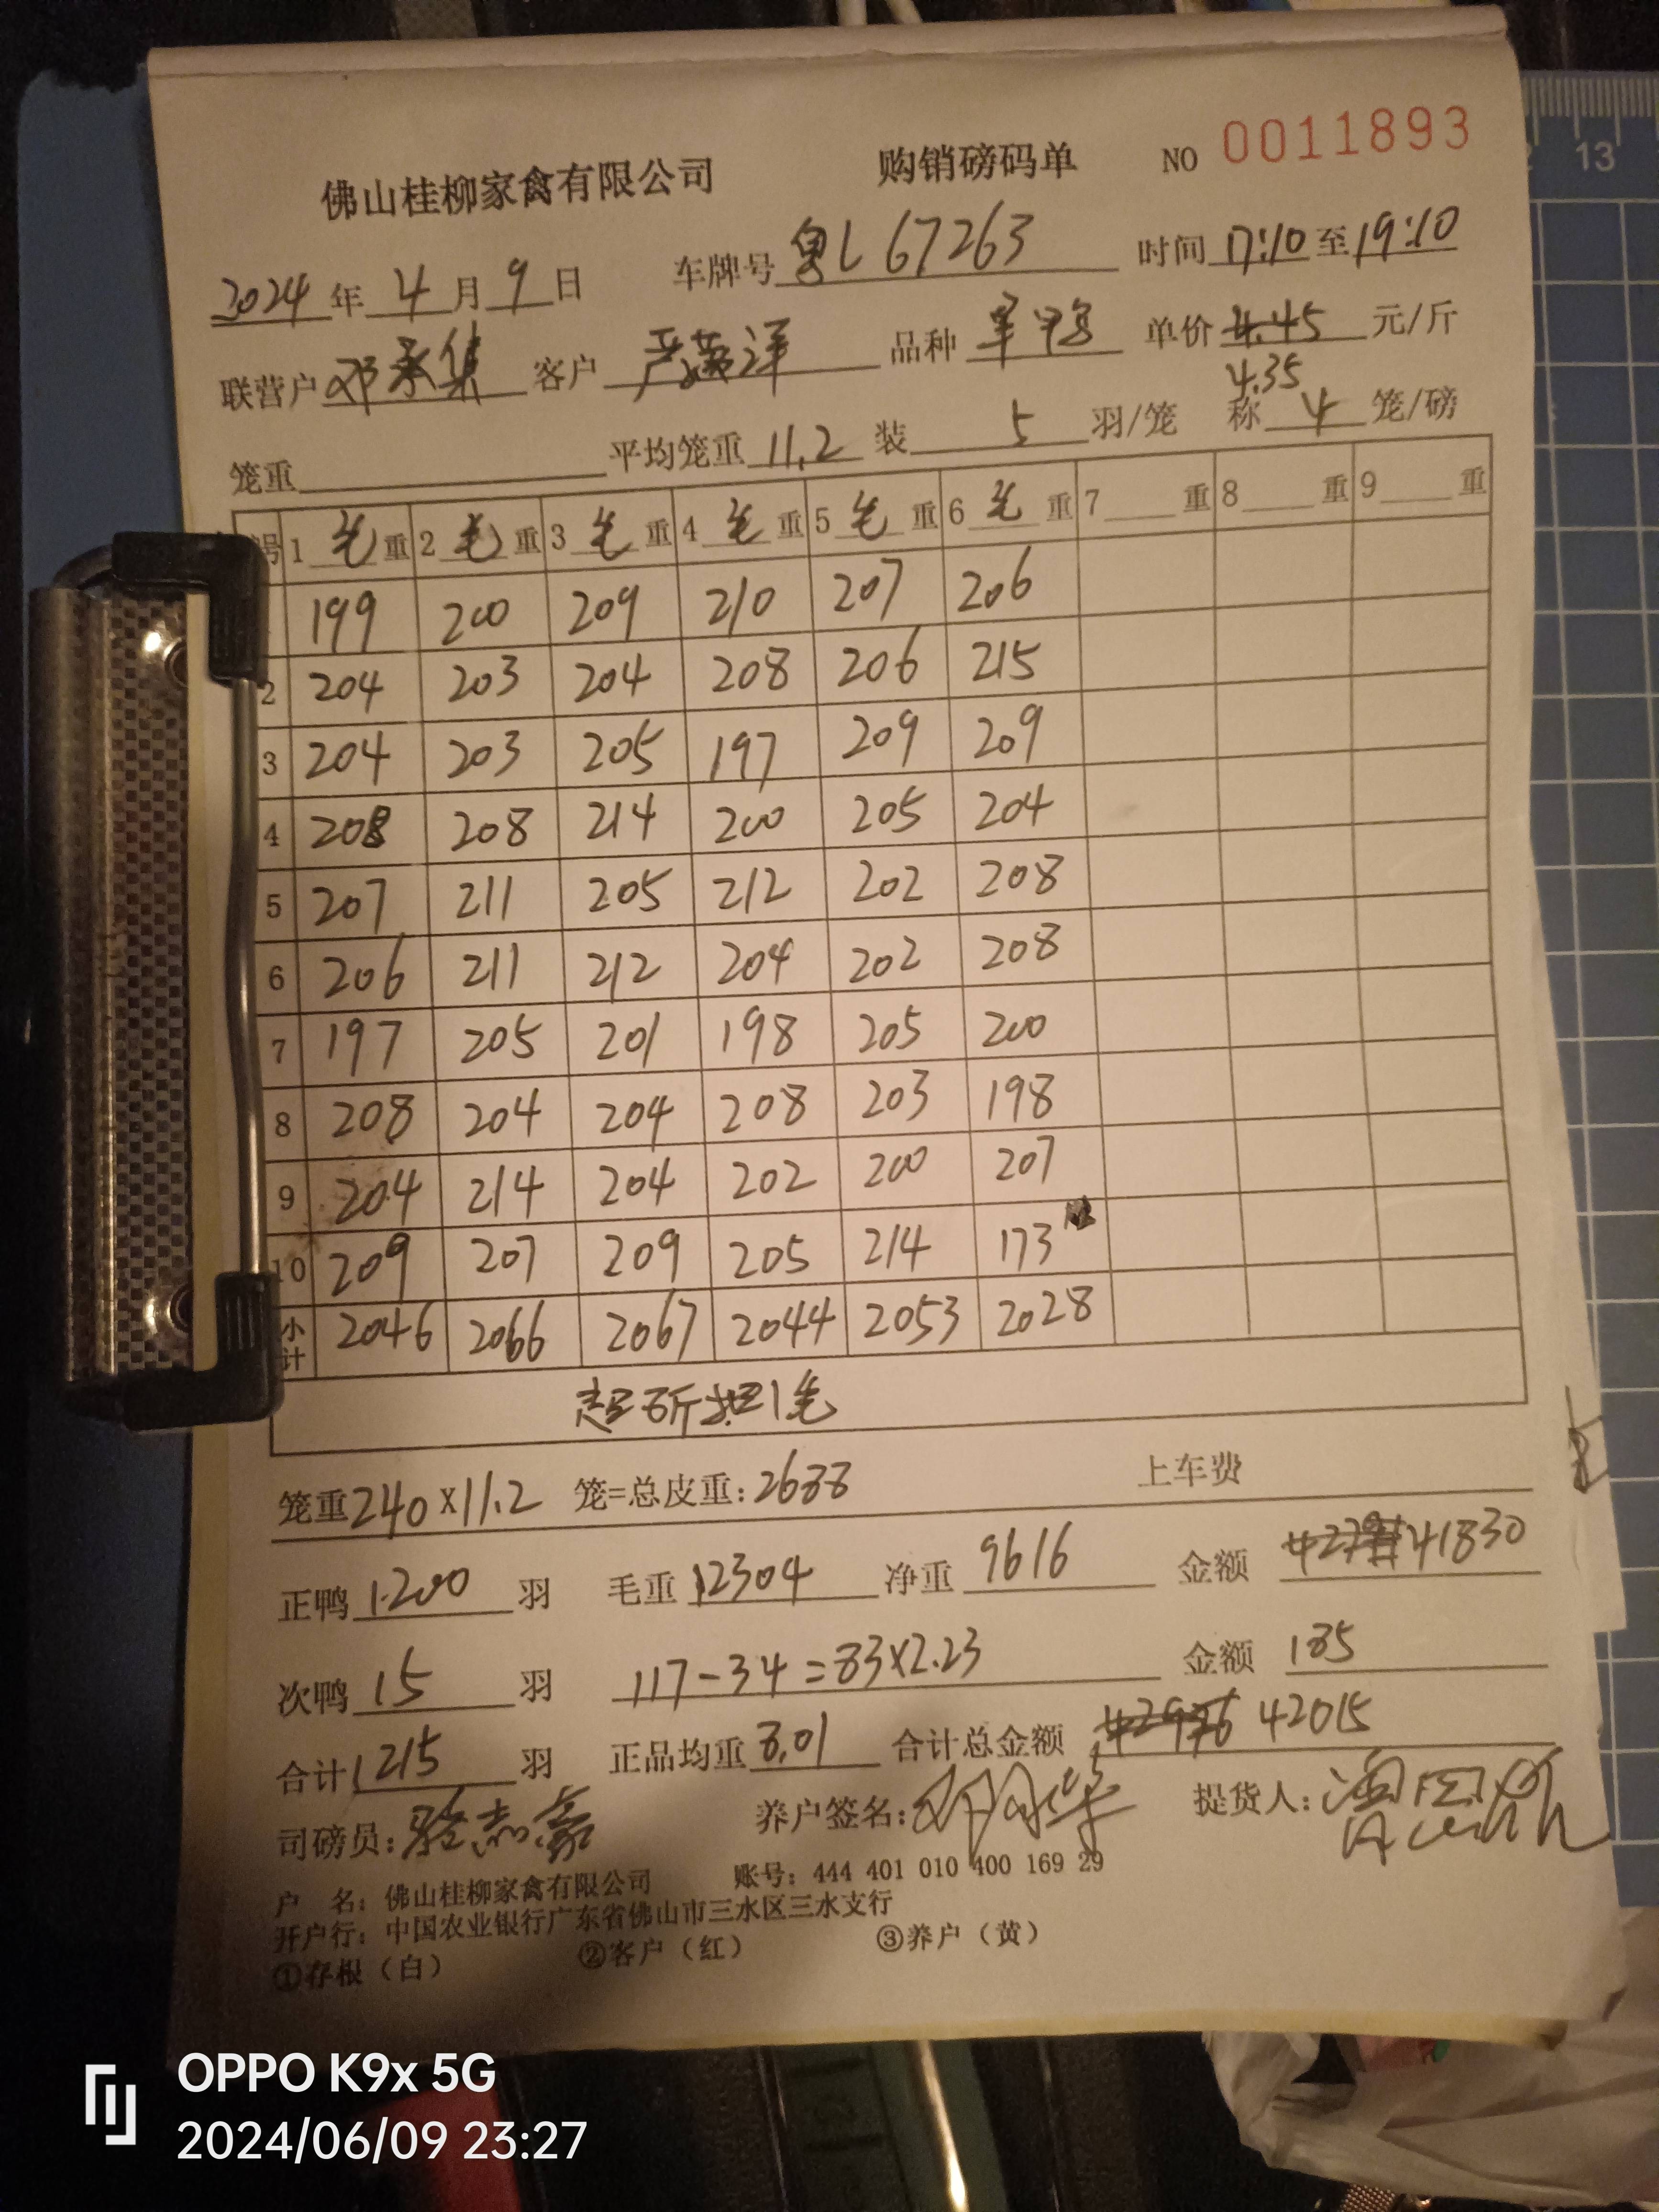 佛山桂柳家禽有限公司 购销磅码单 NO 0011893
2024年4月9日 车牌号 粤L67263 时间 17:10 至 19:10
联营户 邓承集 客户 严 洋 品种 单价 4.45 元/斤
4.35
笼重 平均笼重 11.2 装 5 羽/笼 称 4 笼/磅
号 1 毛 重 2 毛 重 3 毛 重 4 毛 重 5 毛 重 6 毛 重 7 重 8 重 9 重
199 200 209 210 207 206
2 204 203 204 208 206 215
3 204 203 205 197 209 209
4 208 208 214 200 205 204
5 207 211 205 212 202 208
6 206 211 212 204 202 208
7 197 205 201 198 205 200
8 208 204 204 208 203 198
9 204 214 204 202 200 207
10 209 207 209 205 214 173
小计 2046 2066 2067 2044 2053 2028
超8斤扣1毛
笼重 240 x 11.2 笼=总皮重: 2688 上车费
正鸭 1200 羽 毛重 12304 净重 9616 金额 41830
次鸭 15 羽 117-34=83×2.23 金额 185
合计 1215 羽 正品均重 8.01 合计总金额 42976 42015
司磅员: 骆志豪 养户签名: 提货人:
户 名: 佛山桂柳家禽有限公司 账号: 444 401 010 400 169 29
开户行: 中国农业银行广东省佛山市三水区三水支行
①存根（白） ②客户（红） ③养户（黄）
13
OPPO K9x 5G
2024/06/09 23:27